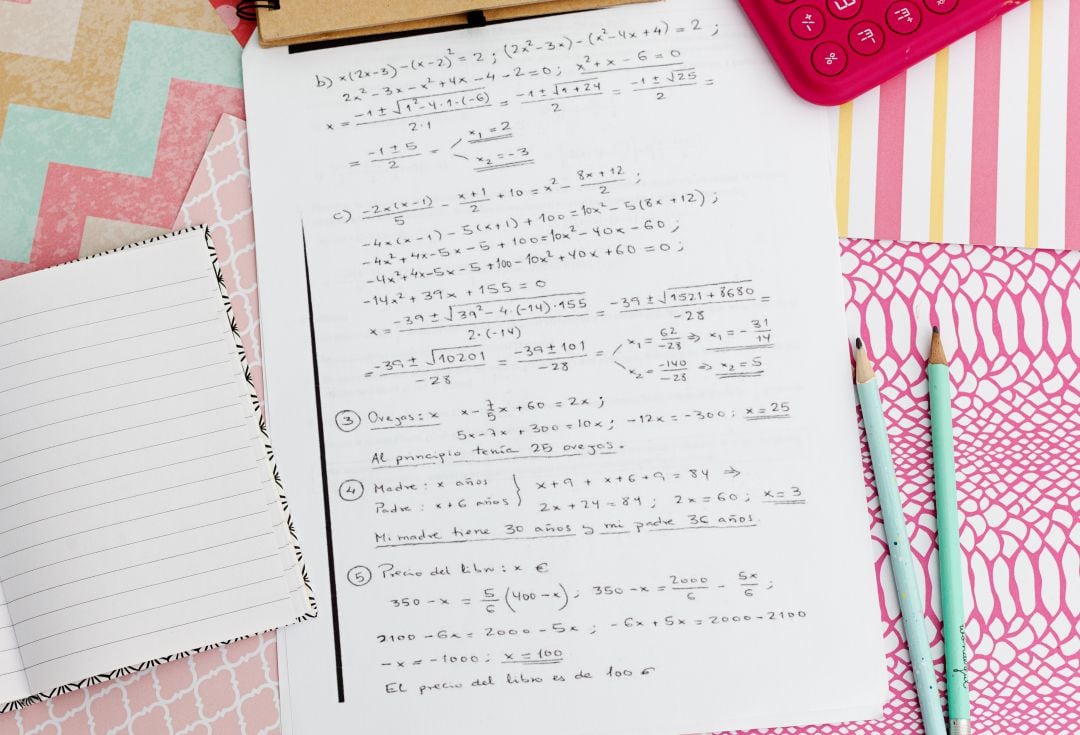 b) x(2x-3)-(x-2)² = 2 ; (2x²-3x)-(x²-4x+4) = 2 ;
2x²-3x-x²+4x-4-2=0; x²+x-6=0
x = (-1±√(1²-4·1·(-6)))/(2·1) = (-1±√(1+24))/2 = (-1±√25)/2 =
= (-1±5)/2 = x₁=2
x₂=-3
c) (-2x(x-1))/5 - (x+1)/2 + 10 = x² - (8x+12)/2 ;
-4x(x-1)-5(x+1)+100=10x²-5(8x+12) ;
-4x²+4x-5x-5+100=10x²-40x-60 ;
-4x²+4x-5x-5+100-10x²+40x+60=0 ;
-14x²+39x+155=0
x = (-39±√(39²-4·(-14)·155))/(2·(-14)) = (-39±√(1521+8680))/(-28) =
= (-39±√10201)/(-28) = (-39±101)/(-28) = x₁ = 62/-28 ⇒ x₁ = -31/14
x₂ = -140/-28 ⇒ x₂=5
③ Ovejas: x x-7/5x+60=2x ;
5x-7x+300=10x ; -12x=-300 ; x=25
Al principio tenía 25 ovejas.
④ Madre: x años } x+9+x+6+9=84 ⇒
Padre: x+6 años } 2x+24=84 ; 2x=60 ; x=3
Mi madre tiene 30 años y mi padre 36 años.
⑤ Precio del libro: x €
350-x = 5/6(400-x) ; 350-x = 2000/6 - 5x/6 ;
2100-6x=2000-5x ; -6x+5x=2000-2100
-x=-1000 ; x=100
El precio del libro es de 100 €